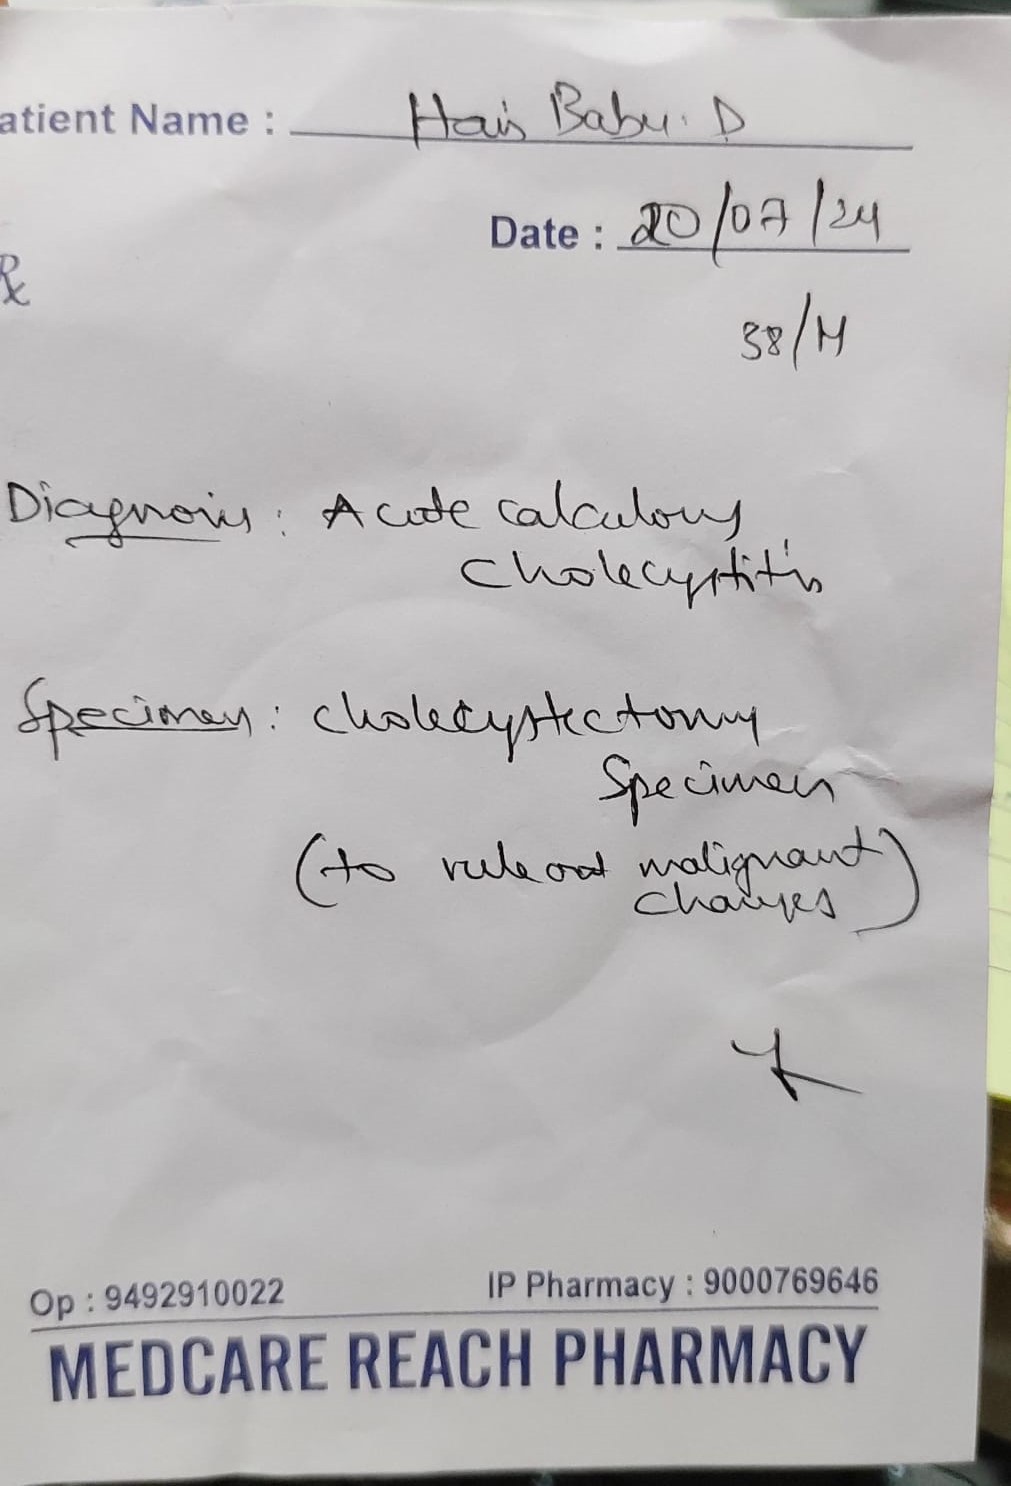 atient Name : Haris Babu. D
Date : 20/07/24
Rx
38/M
Diagnosis : Acute calculous
cholecystitis
Specimen : cholecystectomy
Specimen
(to rule out malignant
changes)
Op : 9492910022 IP Pharmacy : 9000769646
MEDCARE REACH PHARMACY